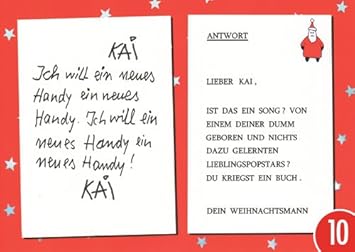 KAI
Ich will ein neues
Handy ein neues
Handy. Ich will ein
neues Handy ein
neues Handy!
KAI
ANTWORT
LIEBER KAI,
IST DAS EIN SONG? VON
EINEM DEINER DUMM
GEBOREN UND NICHTS
DAZU GELERNTEN
LIEBLINGSPOPSTARS?
DU KRIEGST EIN BUCH.
DEIN WEIHNACHTSMANN
10